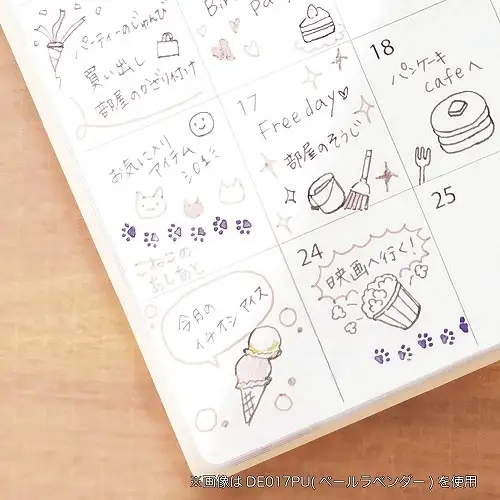 パーティーのじゅんび
買い出し
部屋のかざり付け
17
Free day
部屋のそうじ
18
パンケーキ
cafeへ
お気に入り
アイテム
こねこの
あしあと
24
映画へ行く!
25
今月の
イチオシ アイス
※画像は DE017PU( ペールラベンダー ) を使用